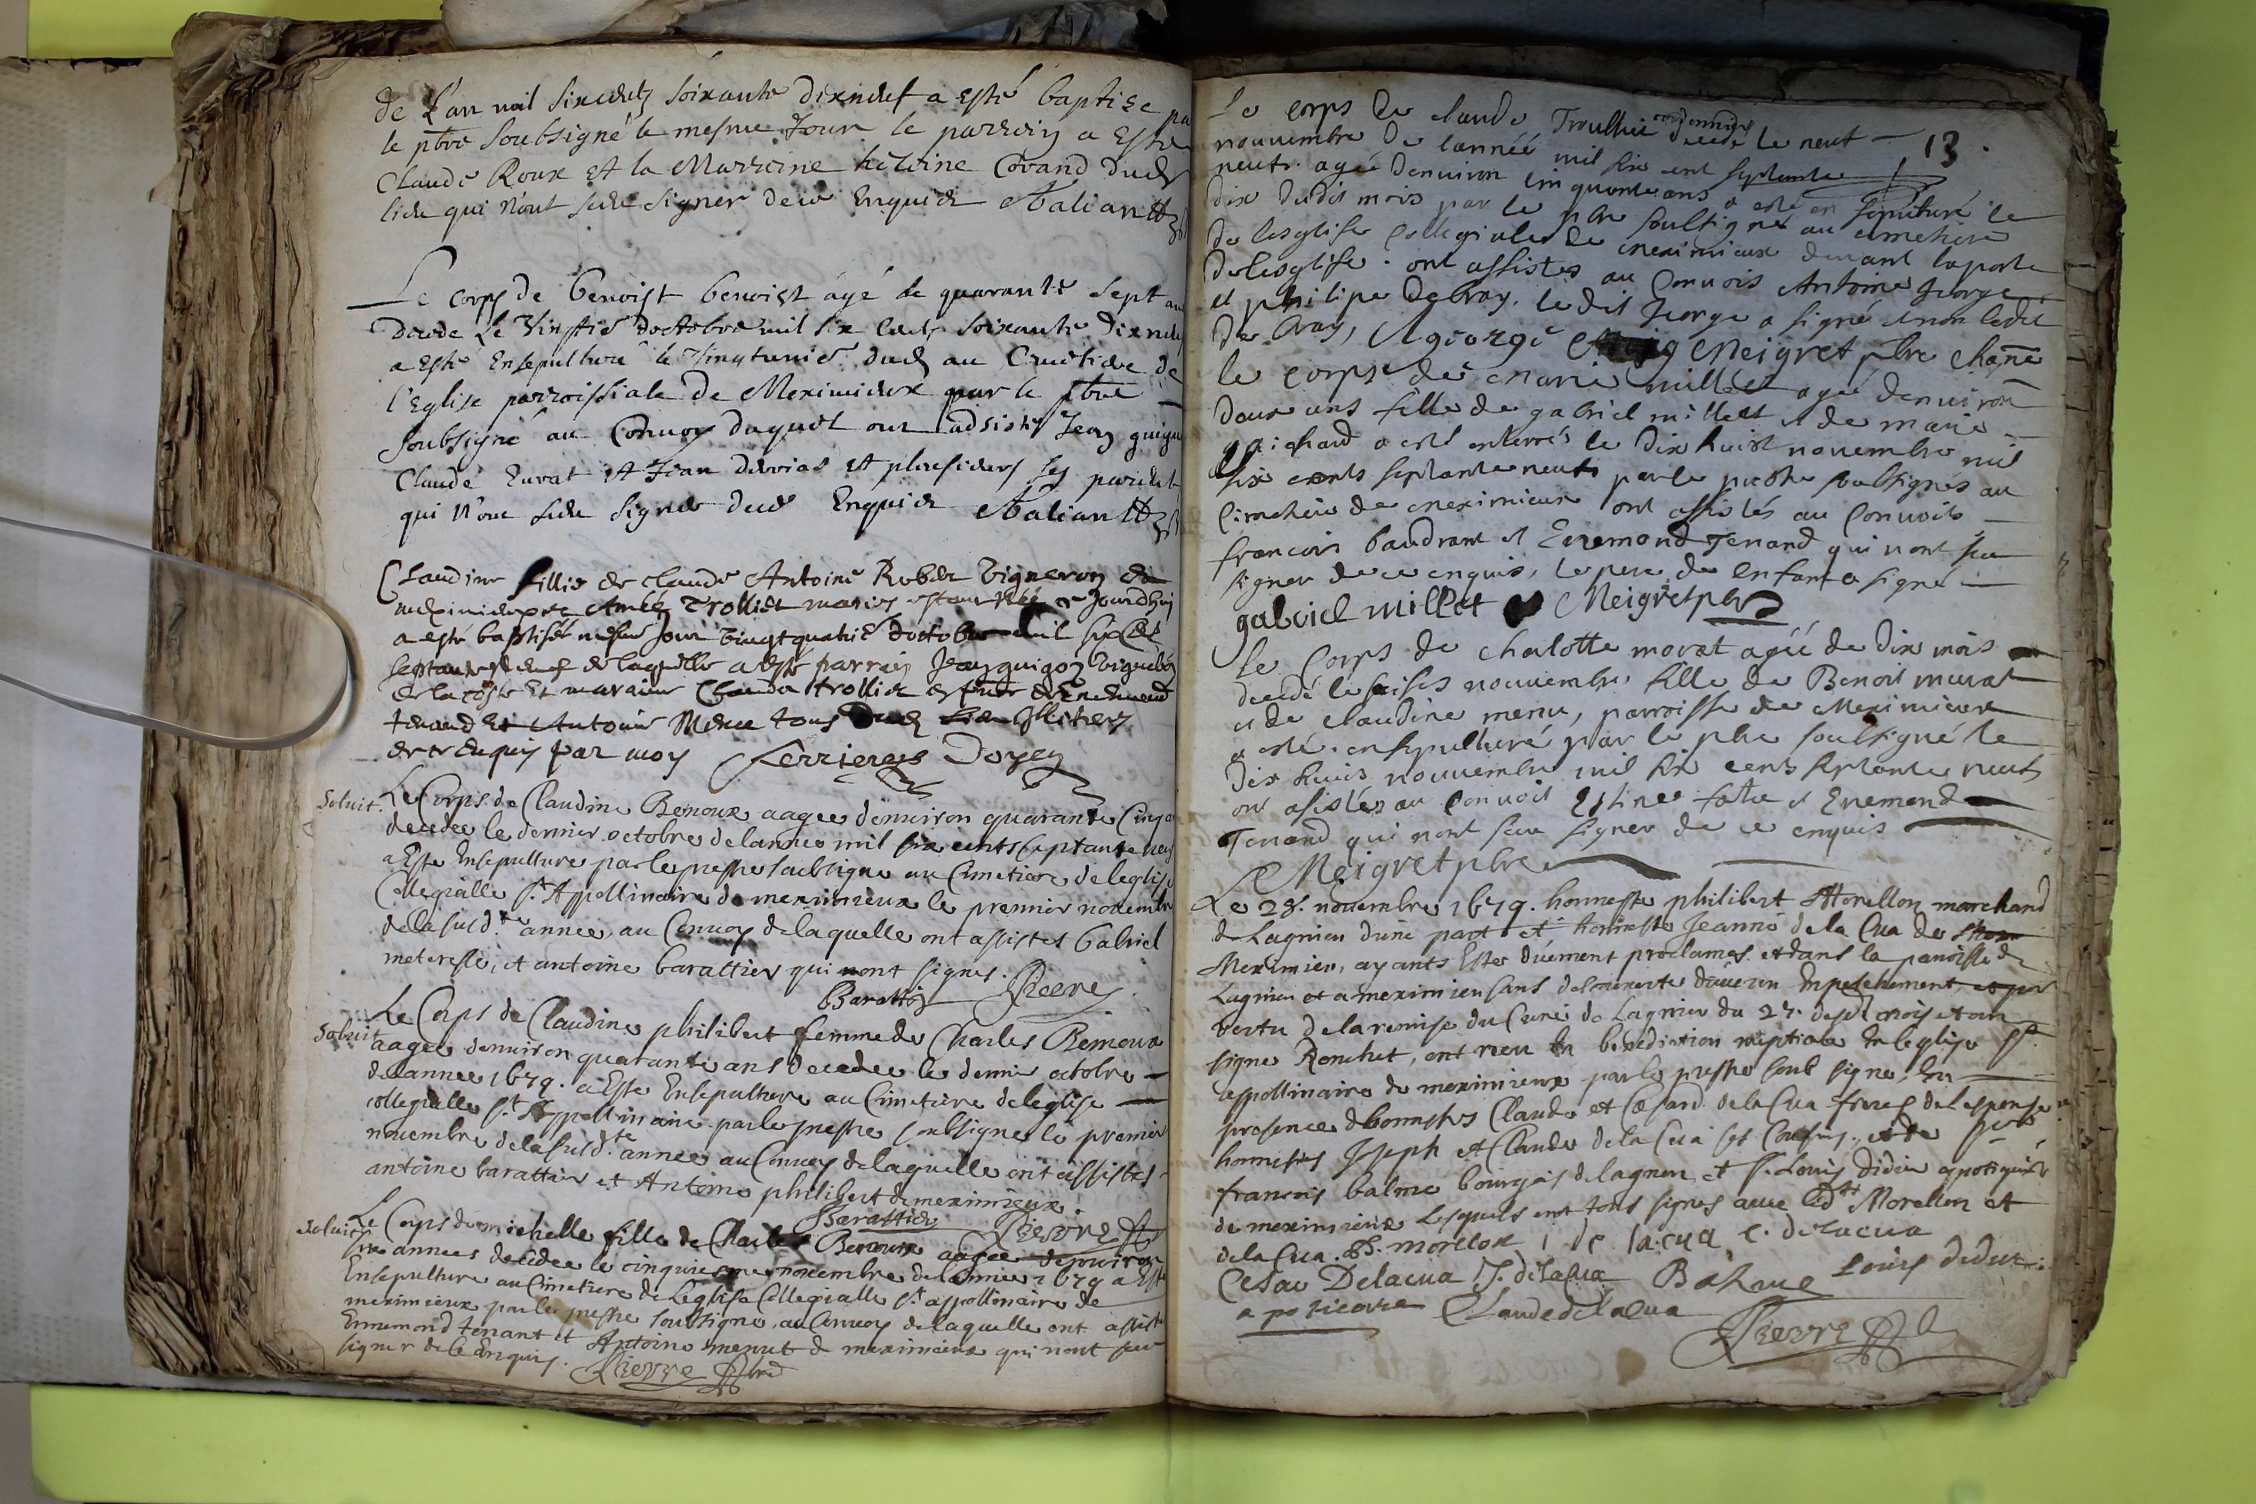 de L'an mil sixcents soixante dixneuf a esté baptise pa
le pbre soubsigné le mesme Jour le parrein a Esté
Claude Roux et la Marreine heleine Covand dud
lieu qui n'ont sceu signer dece Enquis
Le corps de benoist benoist âgé de quarante sept an
decede Le Vingtie doctobre mil six cents soixante dixneuf
a Esté Ensepulturé le Vingtunie dud au Cimetiere de
l'Eglise parroissiale de Meximieux par le pbre
soubsigné au Convoy duquel ont adsisté Jean
Claude Curat et Jean et plusieurs ses parents
qui n'ont sceu signer dece Enquis
Claudine fillie de Claude Antoine Rober Vigneron de
meximieux et Trolliet maries Jourdhuy
a esté baptisée mesme Jour Vingtquatre doctobre mil six cents
septante neuf de laquelle a esté parrain Jean guigoz Vigneron
de la coste Et maraine Clauda trolliet
tenand Et Antoine Menu tous dud lieu Illiterez
de ce Enquis par moy ferrierens Doyen
Soluit. Le Corps de Claudine Benoux aagee denuiron quarante Cinq
decedee le dernier octobre delannee mil six cents septante neuf
a Este Ensepulture par le prestre soubsigne au Cimetiere de leglise
Collegialle St Appollinaire de meximieux le premier novembre
dela susdte annee, au Convoy de laquelle ont assistes Gabriel
meteresse, et antoine barattier qui nont signes.
Barattier Pieere
Soluit Le Corps de Claudine philibert femme de Charles Benoux
aagee denuiron quarante ans decedee le dernier octobre
delannee 1679. a Este Ensepulture au Cimetiere deleglise
collegialle St Appollinaire par le prestre soubsigne le premier
nouembre dela susdte annee au Convoy de laquelle ont assistes
antoine barattier et Antoine philibert de meximieux.
Barattier Pieere
Soluit Le Corps de michelle fille de Charles Benoux aagee denuiron
six annees decedee le cinquiesme nouembre de lannee 1679 a Esté
Ensepulture au Cimetiere de Leglise Collegialle St appollinaire de
meximieux par le prestre soubsigne, au Convoy de laquelle ont assiste
Ennemond tenant et Antoine menut de meximieux qui nont sceu
signer de ce Enquis. Pieere
13
Le corps de claude Troulliet cordonnier decede le neuf
nouuembre de lannéé mil six cent septante
neuf. agé denuiron cinquante ans a esté en sepulturé le
dix dudit mois par le pbre soubsigné au cimetiere
de lesglise Collegiale de meximieux deuant la porte
de lesglise. ont assistes au Conuois Antoine george
et philipe Debray. le dit george a signé et non ledit
De bray, A george Meigret pbre chane
le corps de marie millet agé denuiron
deux ans fille de gabriel millet et de marie
guichard a esté enterrés le dix huict novembre mil
six cents septante neuf par le prebstre soubsignés au
Cimetiere de meximieux ont assistés au Conuois
francois baudrant et Enemond Tenand qui nont sceu
signer de ce enquis, le pere de lenfant a signé
gabriel millet Meigret pbre
le Corps de chalotte morat agéé de dix mois
decedé le seises nouuembre fille de Benoit murat
et de claudine menu, parroisse de Meximieux
a esté ensepulturé par le pbre soubsigné le
dix huis nouuembre mil six cents septante neuf
ont asistés au Conuoit et Enemond
Tenand qui nont sceu signer de ce enquis
Meigret pbre
Le 28. nouembre 1679. honneste philibert Morellon marchand
de Lagnieu dune part et honneste Jeanne de la Cua de
Meximieu, ayants Este düement proclames. et dans la paroisse de
Lagnieu et a meximieu sans descouuerte daucun Empeschement, et par
vertu de la remise du Curé de Lagnieu du 27. desd mois
signe Ronchet, ont receu la benediction nuptiale En leglise St
appollinaire de meximieux par le prestre soub signe, En
presence dhonnestes Claude et Cæsard dela Cua freres de lespouse
honnestes Joseph et Claude de la Cua ses Cousins, et de Sr
francois balme bourgois de lagnieu, et Sr Louis didier appotiquaire
de meximieux Lesquels ont tous signes auec led Morellon et
dela Cua. P. morellon i de lacua c. delacua
Cesar Delacua J. delacua Balme Louis didier
apoticaire Claude delacua
Pieere